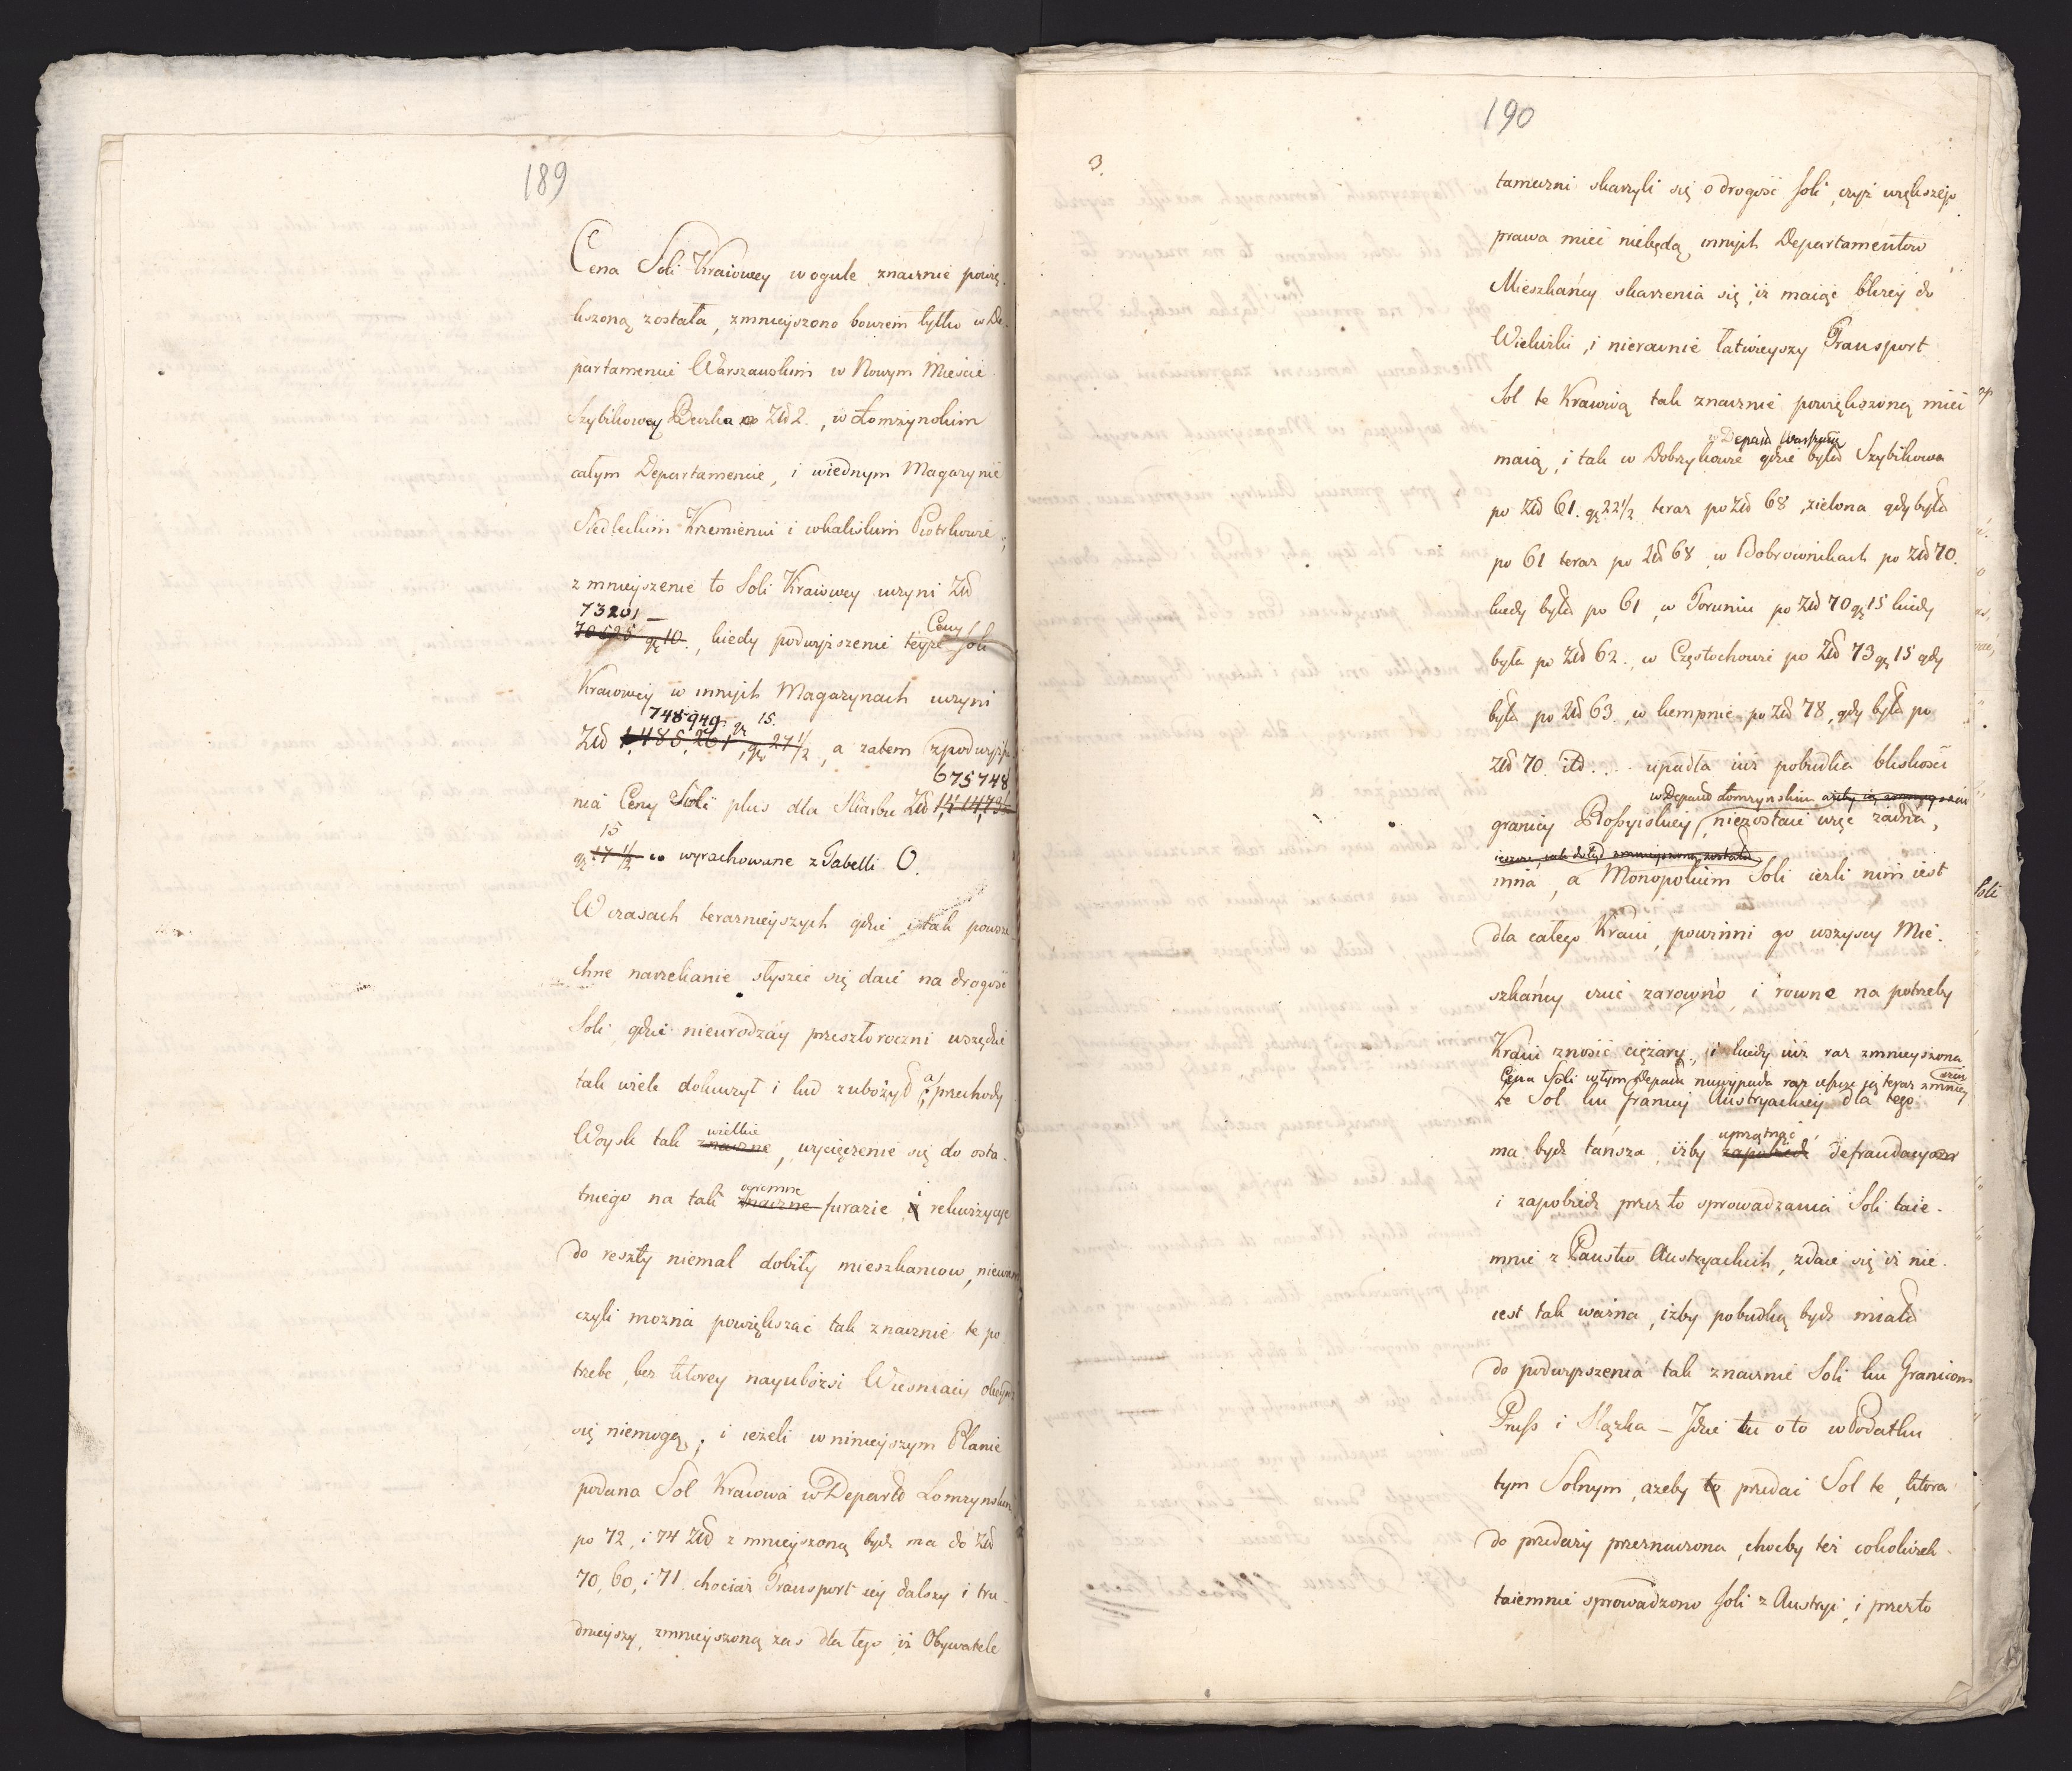 189
Cena Soli Kraiowey wogule znacznie powię-
kszoną została, zmnieyszono bowiem tylko w De-
partamencie Warszawskim w Nowym Mieście
Szybikowey Beczka o Złł 2., w Łomżynskim
całym Departamencie, i wiednym Magazynie
Siedleckim Krzemieniu i wkaliskim Piotrkowie,
zmnieyszenie to Soli Kraiowey uczyni Złł
73201 –
70525 gr 10., kiedy podwyższenie teyże Ceny Soli
Kraiowey w innych Magazynach uczyni
748949 gr 15.
Złł 1,485,261, gr 27 1/2, a zatem zpodwyższe-
675748
nia Ceny Soli plus dla Skarbu Złł
15
gr 17 1/2 co wyrachowane z Tabelli O.
W czasach teraznieyszych gdzie i tak powsze-
chne narzekanie słyszeć się daie na drogość
Soli, gdzie nieurodzay przeszłoroczni wszędzie
tak wiele dokuczył i lud zubożył, a przechody
Woysk tak znaczne wielkie, wycięczenie się do osta-
tniego na tak znaczne ogromne furazie i rekwizycye
do reszty niemal dobiły mieszkancow, niewiem
czyli mozna powiększać tak znacznie te po
trzebe, bez ktorey nayubożsi Wiesniacy obeyść
się niemogą; i ieżeli w ninieyszym Planie
podana Sol Kraiowa w Departd Łomzynskim
po 72, i 74 Złł zmnieyszoną bydz ma do Złł
70, 60, i 71. chociaż Transport iey dalszy i tru-
dnieyszy, zmnieyszoną zas dla tego iż Obywatele
190
3.
tameczni skarzyli się o drogość Soli, czyż większego
prawa mieć niebędą innych Departamentow
Mieszkańcy skarzenia się, iż maiąc bliżey do
Wieliczki, i nierownie łatwieyszy Transport
Sol te Kraiową tak znacznie powiększoną mieć
w Depard Warszaw
maią, i tak w Dobrzykowie gdzie była Szybikowa
po Złł 61. gr 22 1/2 teraz po Złł 68, zielona gdy była
po 61 teraz po Złł 68, w Bobrownikach po Złł 70.
kiedy była po 61, w Toruniu po Złł 70 gr 15 kiedy
była po Złł 62., w Częstochowie po Złł 73 gr 15 gdy
była po Złł 63. w kempnie po Złł 78, gdy była po
Złł 70. itd.... upadła iuż pobudka bliskości
w Depard Łomzynskim
granicy Rossyiskiey, niezostaie więc żadna,
inna, a Monopolium Soli iezli nim iest
dla całego Kraiu, powinni go wszyscy Mie-
szkańcy czuć zarowno, i rowne na potrzeby
Kraiu znosić ciężary, i kiedy iuż raz zmnieyszona
Cena Soli w tym Depard niewypada raz ieszcze ią teraz zmniey
że Sol ku granicy Austryackiey dla tego
ma bydz tańsza, iżby zapobiedz uprzątnąć defraudacyom
i zapobiedz przez to sprowadzania Soli taie-
mnie z Panstw Austryackich, zdaie się iż nie
iest tak ważna, izby pobudką bydz miała
do podwyższenia tak znacznie Soli ku Granicom
Pruss i Slązka – Idzie tu o to w Podatku
tym Solnym, ażeby to przedać Sol te, ktora
do przedaży przeznaczona, choćby też cokolwiek
taiemnie sprowadzono Soli z Austryi, i przezto